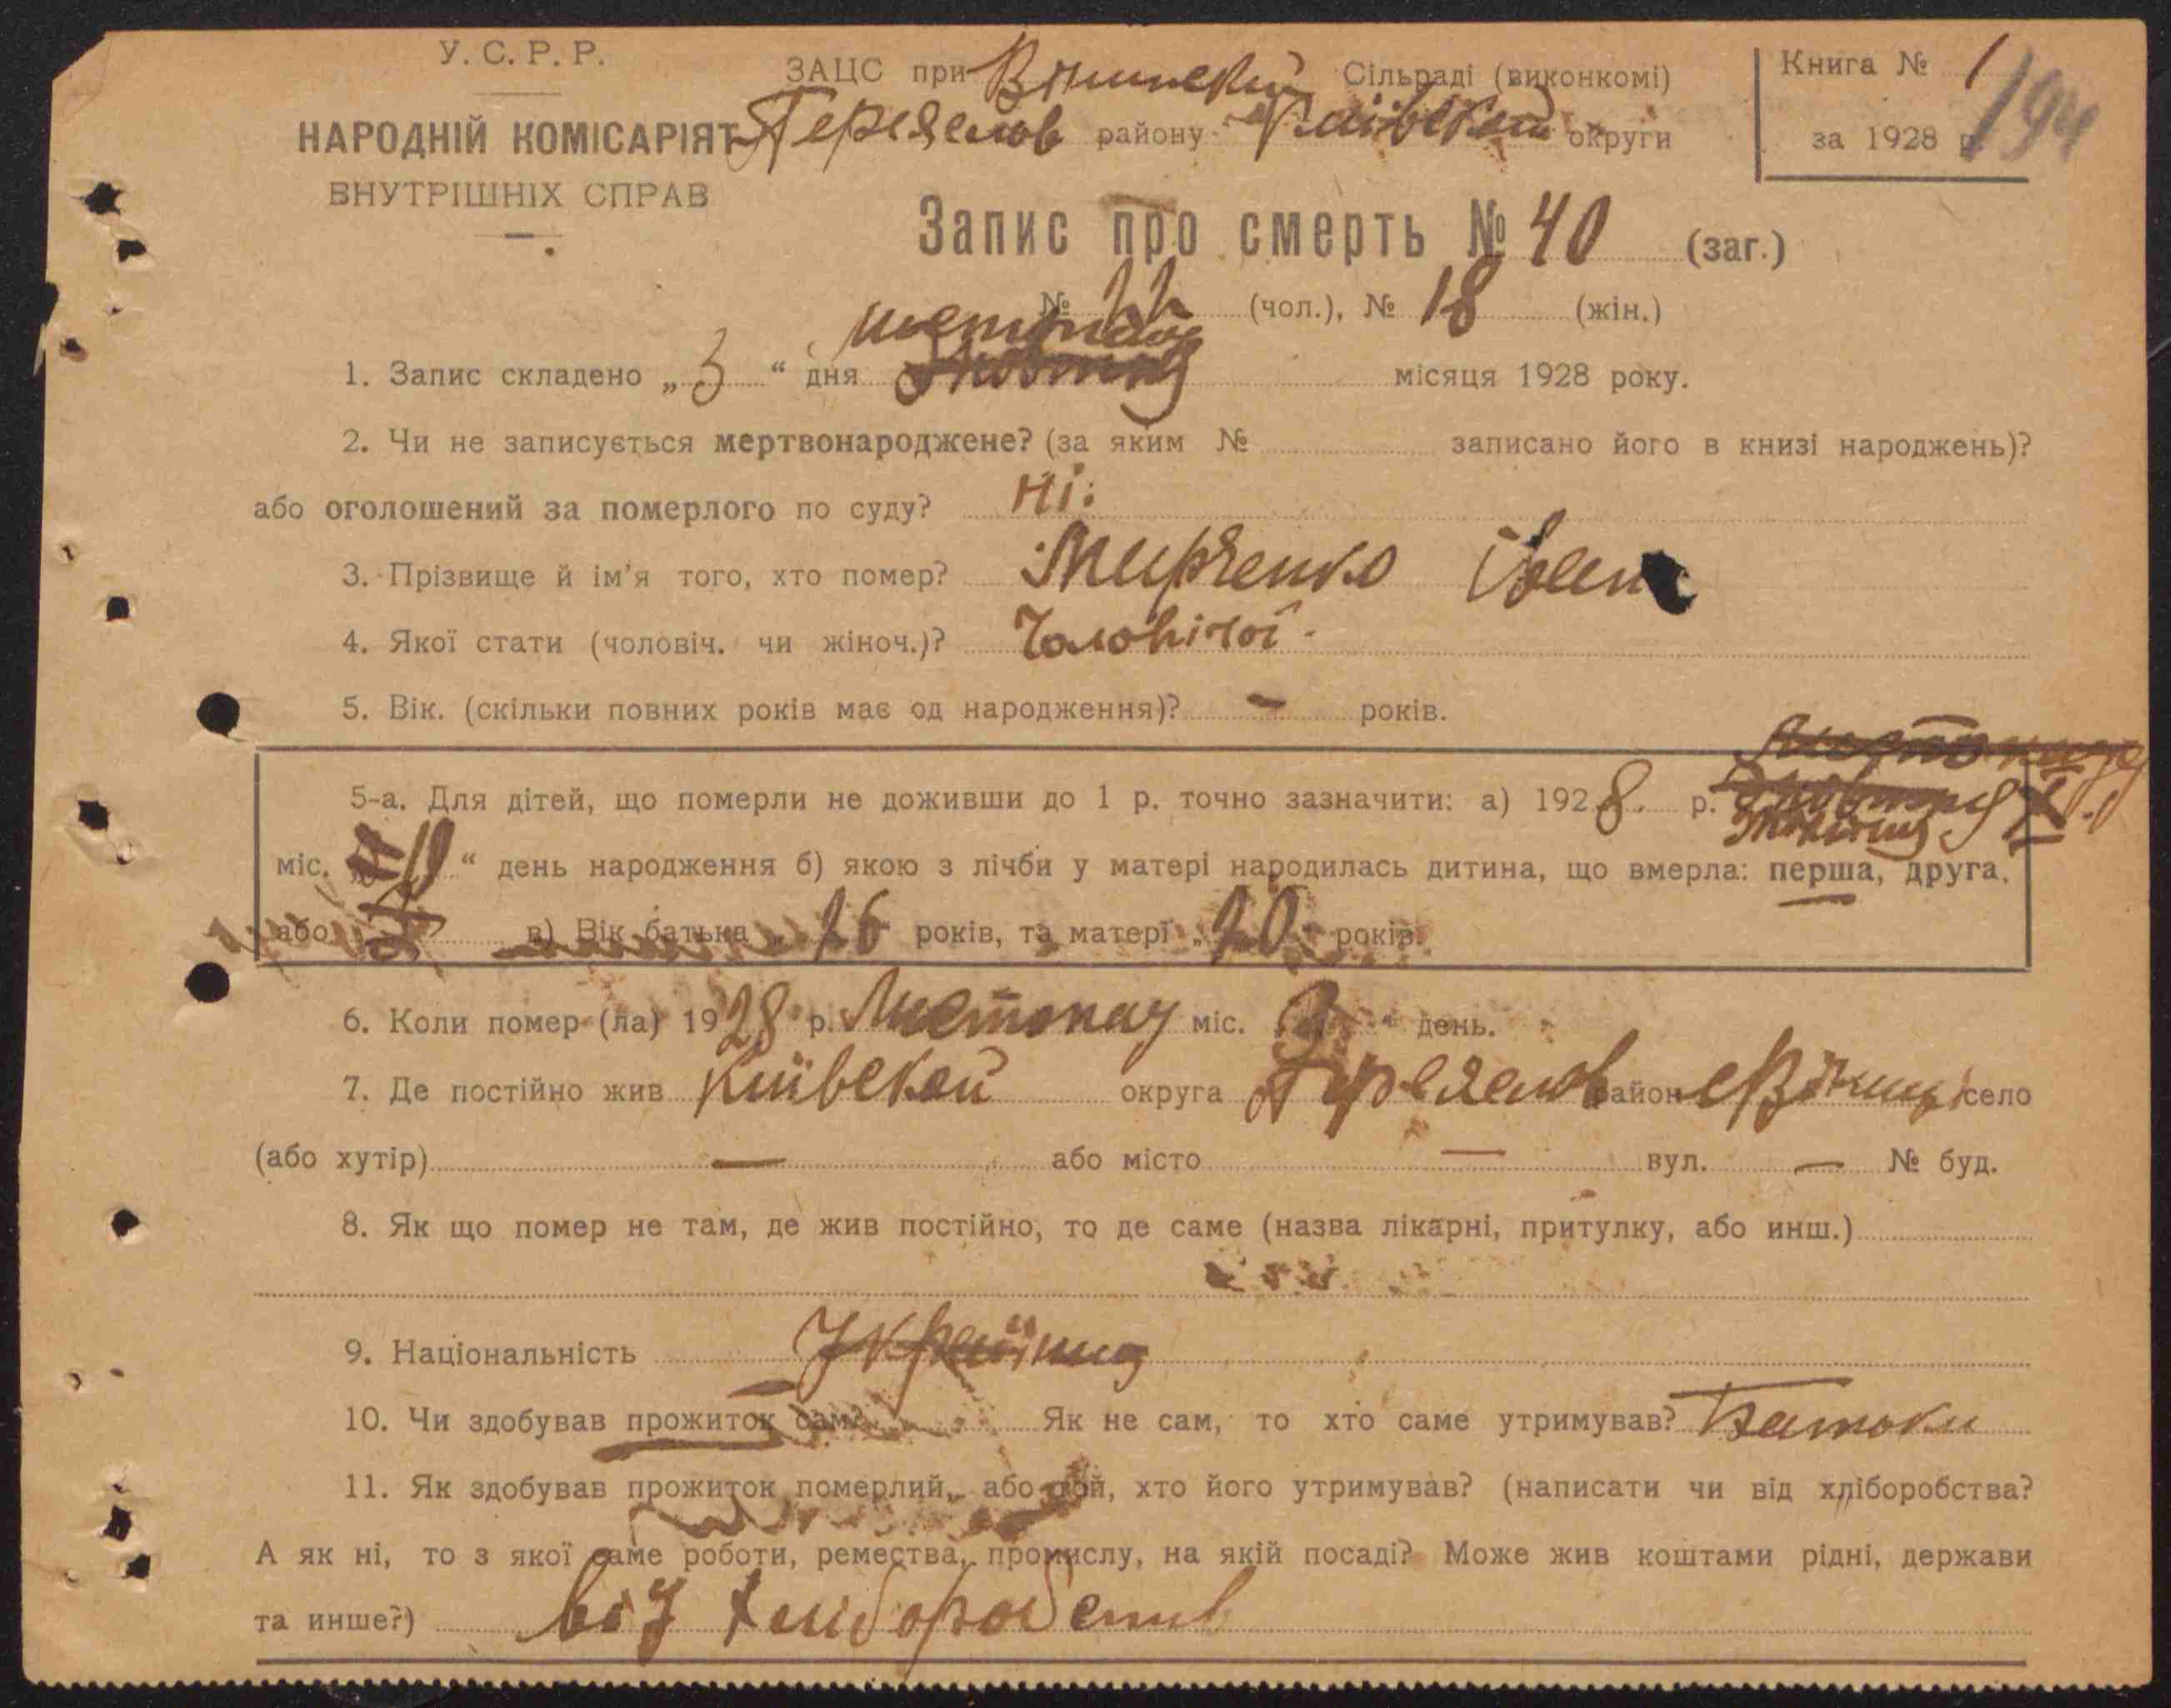 У. С. Р. Р.
НАРОДНІЙ КОМІСАРІЯТ
ВНУТРІШНІХ СПРАВ
ЗАЦС при Сільраді (виконкомі)
Переяслов району Київской округи
Книга № 1
за 1928 р. 194
Запис про смерть № 40 (заг.)
№ 22 (чол.), № 18 (жін.)
листопад
1. Запис складено „ 3 “ дня Жовтня місяця 1928 року.
2. Чи не записується мертвонароджене? (за яким № записано його в книзі народжень)?
або оголошений за померлого по суду? Ні:
3. Прізвище й ім'я того, хто помер? Мирченко Іван
4. Якої стати (чоловіч. чи жіноч.)? Чоловічої.
5. Вік. (скільки повних років має од народження)? — років.
5-а. Для дітей, що померли не доживши до 1 р. точно зазначити: а) 1928. р.
міс. „ “ день народження б) якою з лічби у матері народилась дитина, що вмерла: перша, друга,
або в) Вік батька „ 26 років, та матері „ 20 років.
6. Коли помер (ла) 1928 р. Листопад міс. „ 3 “ день.
7. Де постійно жив Київской округа Переяслов район село
(або хутір) — або місто — вул. — № буд.
8. Як що помер не там, де жив постійно, то де саме (назва лікарні, притулку, або инш.)
9. Національність
10. Чи здобував прожиток сам? Як не сам, то хто саме утримував? Батьки
11. Як здобував прожиток померлий, або той, хто його утримував? (написати чи від хліборобства?
А як ні, то з якої саме роботи, ремества, промислу, на якій посаді? Може жив коштами рідні, держави
та инше?) від хліборобств